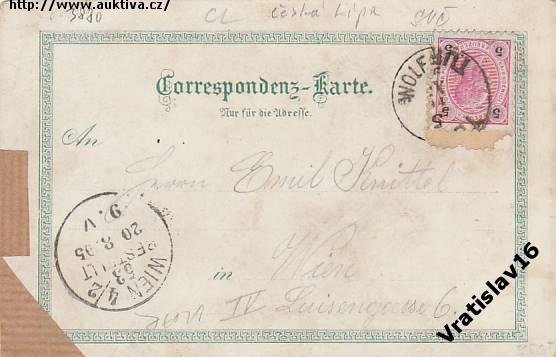 http://www.auktiva.cz/
3880 CL Česká Lípa SVČ
Correspondenz-Karte.
Nur für die Adresse.
5 5
WOLF
An
Herrn Emil Knittel
9. V
20.8.95
BESTELLT
WIEN 4/2
53
in Wien
IV Luisengasse 6
Vratislav16